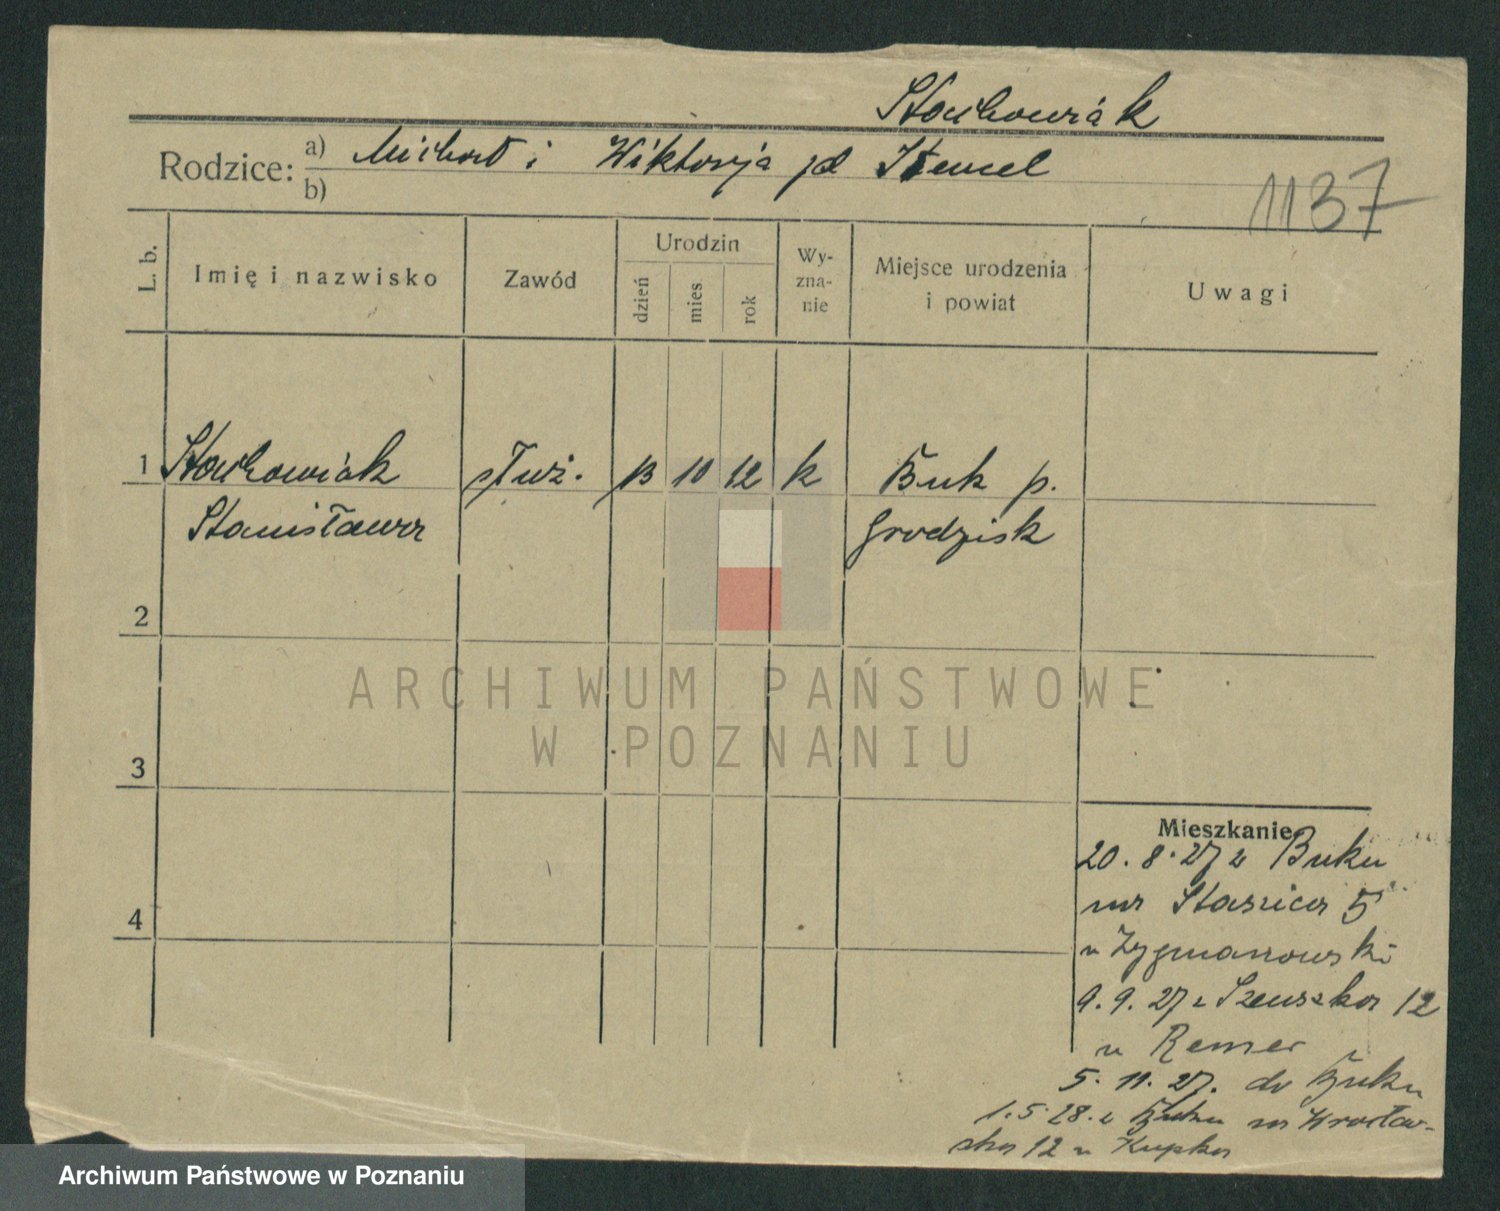 Stachowiak
Rodzice: a) Michał i Wiktorja zd Stemel
b)
1137
L. b. Imię i nazwisko Zawód Urodzin dzień mies rok Wy-zna-nie Miejsce urodzenia i powiat Uwagi
1 Stachowiak służ. 13 10 12 k Buk p.
Stanisława Grodzisk
2
ARCHIWUM PAŃSTWOWE
W POZNANIU
3
Mieszkanie
20.8.27 z Buku
na Staszica 5
4
u Zygmanowski
9.9.27 12
u Remer
5.11.27. do Buku
1.5.28. z Buku na Wrocław-
ska 12 u Kupka
Archiwum Państwowe w Poznaniu